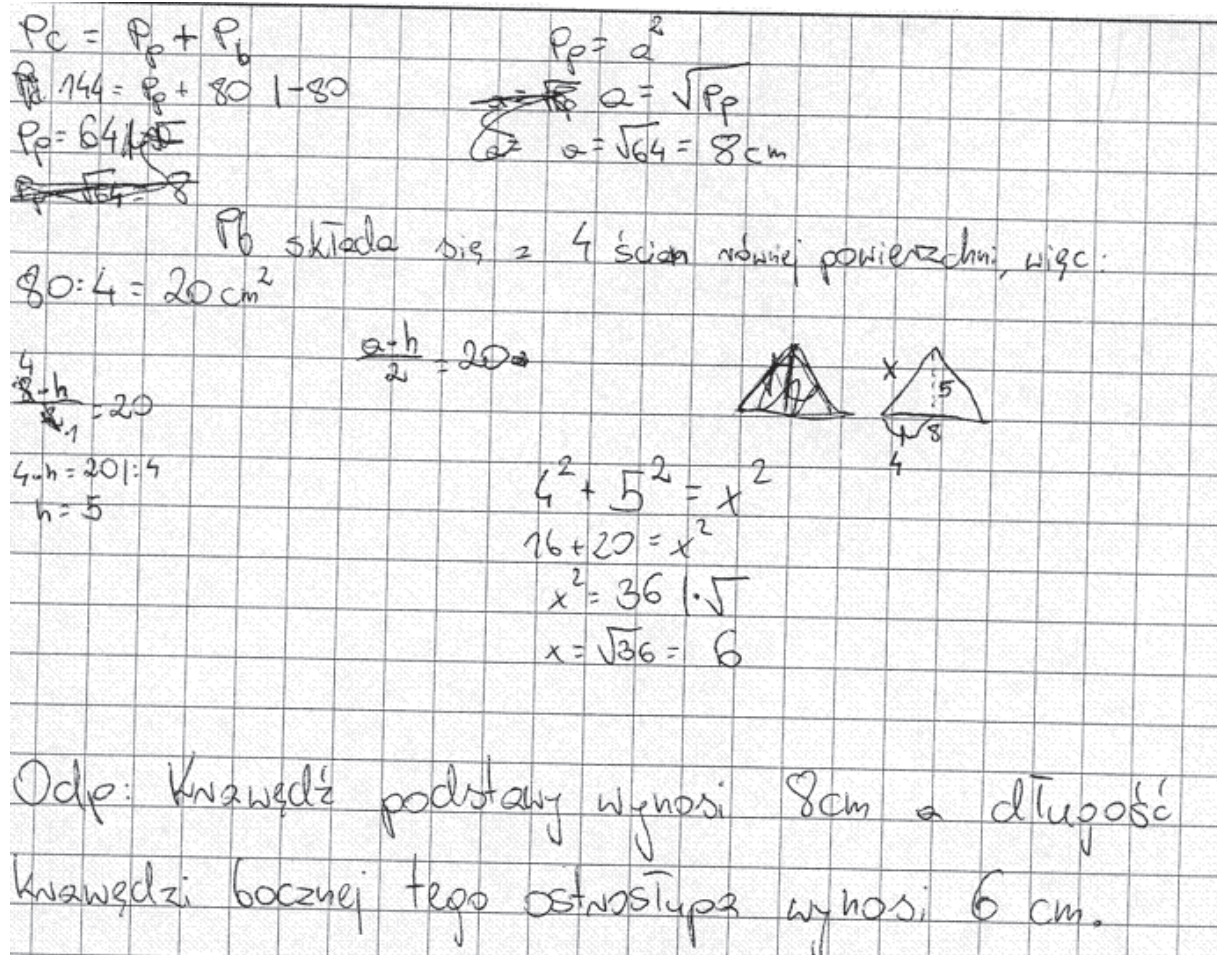 Pc = Pp + Pb
144 = Pp + 80 |-80
Pp = 64
Pp = a²
a = √Pp
a = √64 = 8cm
Pb składa się z 4 ścian równej powierzchni, więc:
80:4 = 20 cm²
a·h/2 = 20
4
8·h/2 1 = 20
4·h = 20 |:4
h = 5
x
5
8
4
4² + 5² = x²
16 + 20 = x²
x² = 36 |·√
x = √36 = 6
Odp: Krawędź podstawy wynosi 8cm a długość
krawędzi bocznej tego ostrosłupa wynosi 6 cm.